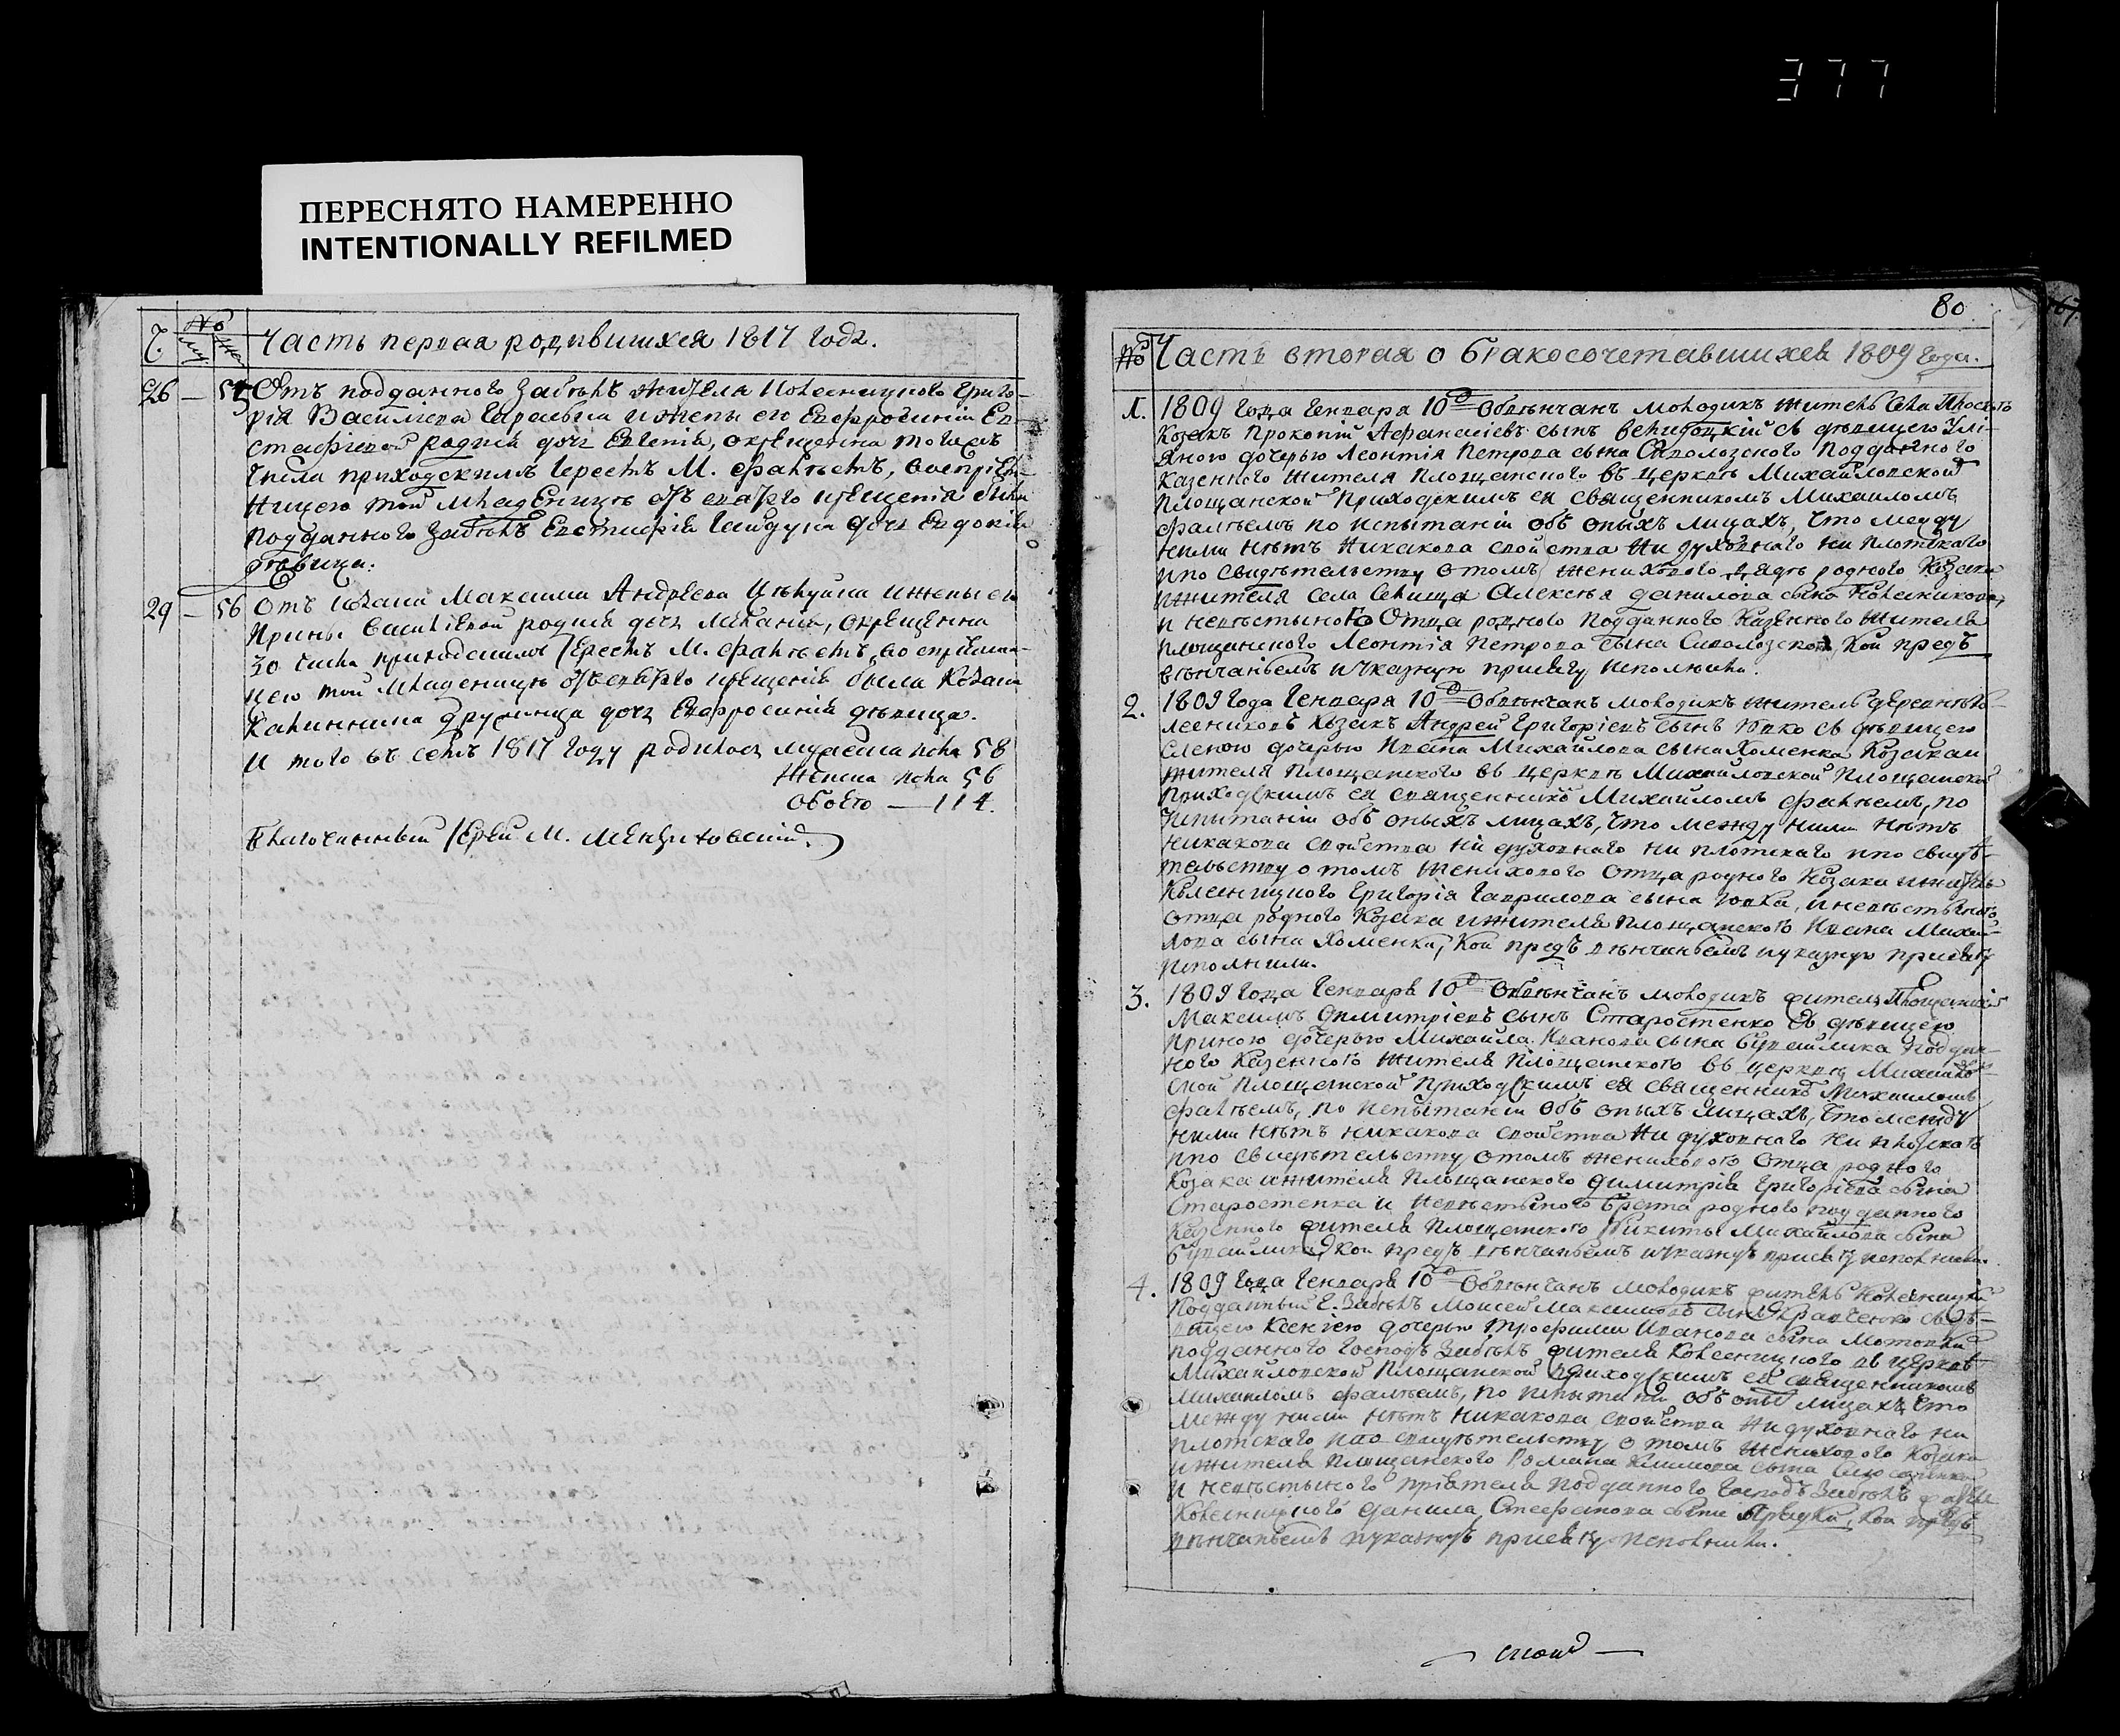 377
ПЕРЕСНЯТО НАМЕРЕННО
INTENTIONALLY REFILMED
Часть первая родившихся 1817 года.
26 — 55 Отъ подданного Забѣлъ жителя Колесницкого Григо-
рія Василіева и жены его Евфросиніи Ев-
стафіевой родися дочь окрещенна тогожъ
числа приходскимъ Іереемъ М. Фалѣемъ, воспріем-
ницею той младеницѣ отъ святаго крещенія была
подданного Забѣлъ Евстафія Гайдука дочь Евдокія
дѣвица.
29 — 56 Отъ козака Максима Андрѣева и жены его
Ирины Василіевой родися дочь Меланія, окрещенна
30 числа приходскимъ Іереемъ М. Фалѣемъ, воспріемни-
цею той младеницѣ отъ святаго крещенія была козака
Калинника дочь Евфросинія дѣвица.
И того въ семъ 1817 году родилось мужеска пола 58
Женска пола 56
Обоего — 114.
Благочинный Іерей М.
80
№ Часть вторая о бракосочетавшихся 1809 года.
1. 1809 года Генваря 10 Обвѣнчанъ молодикъ житель села
Козакъ Прокопій Афанасіевъ сынъ съ дѣвицею Улі-
яною дочерью Леонтія Петрова сына подданного
казенного жителя Площанского въ церквѣ Михайловской
Площанской приходскимъ ея священникомъ Михаиломъ
Фалѣемъ по испытаніи объ оныхъ лицахъ, что между
ними нѣтъ никакова свойства ни духовнаго ни плотскаго
и по свидѣтельству о томъ женихового дядѣ родного козака
и жителя села Алексѣя Данилова сына
и невѣстьиного Отца родного подданного казенного жителя
площанского Леонтія Петрова сына кой предъ
вѣнчаніемъ и указную присягу исполнили.
2. 1809 года Генваря 10 Обвѣнчанъ молодикъ житель деревнѣ Ко-
лесниковъ козакъ Андрей Григоріевъ сынъ Вовко съ дѣвицею
Еленою дочерью Ивана Михайлова сына Хоменка козака и
жителя площанского въ церквѣ Михайловской Площанской
приходскимъ ея священнико Михаиломъ Фалѣемъ, по
испытаніи объ оныхъ лицахъ, что между ними нѣтъ
никакова свойства ни духовнаго ни плотскаго и по свидѣ-
тельству о томъ женихового отца родного козака и жителя
Колесницкого Григорія Гаврилова сына Вовка, и невѣстьиного
отца родного козака и жителя площанского Ивана Михай-
лова сына Хоменка, кои предъ вѣнчаніемъ и указную присягу
исполнили.
3. 1809 года Генваря 10 Обвѣнчанъ молодикъ житель Площанскій
Максимъ Димитріевъ сынъ Старостенко съ дѣвицею
Ириною дочерью Михайла Иванова сына поддан-
ного казенного жителя площанского въ церквѣ Михайлов-
ской Площанской приходскимъ ея священнико Михаиломъ
Фалѣемъ, по испытаніи объ оныхъ лицахъ, что между
ними нѣтъ никакова свойства ни духовнаго ни плотскаго
и по свидѣтельству о томъ женихового отца родного
козака и жителя площанского Димитрія Григоріева сына
Старостенка и невѣстьиного брата родного подданного
казенного жителя площанского Никиты Михайлова сына
кои предъ вѣнчаніемъ и указную присягу исполнили.
4. 1809 года Генваря 10 Обвѣнчанъ молодикъ житель Колесницкій
подданный Г. Забѣлъ Моисей Максимовъ сынъ съ дѣ-
вицею Ксеніею дочерью Трофима Иванова сына
подданного Господъ Забѣлъ жителя Колесницкого въ церквѣ
Михайловской Площанской приходскимъ ея священникомъ
Михаиломъ Фалѣемъ, по испытаніи объ оны лицахъ, что
между ними нѣтъ никакова свойства ни духовнаго ни
плотскаго и по свидѣтельству о томъ женихового козака
и жителя площанского Романа Климова сына
и невѣстьиного пріятеля подданного Господъ Забѣлъ жителя
Колесницкого Данила Стефанова сына кои предъ
вѣнчаніемъ и указную присягу исполнили.